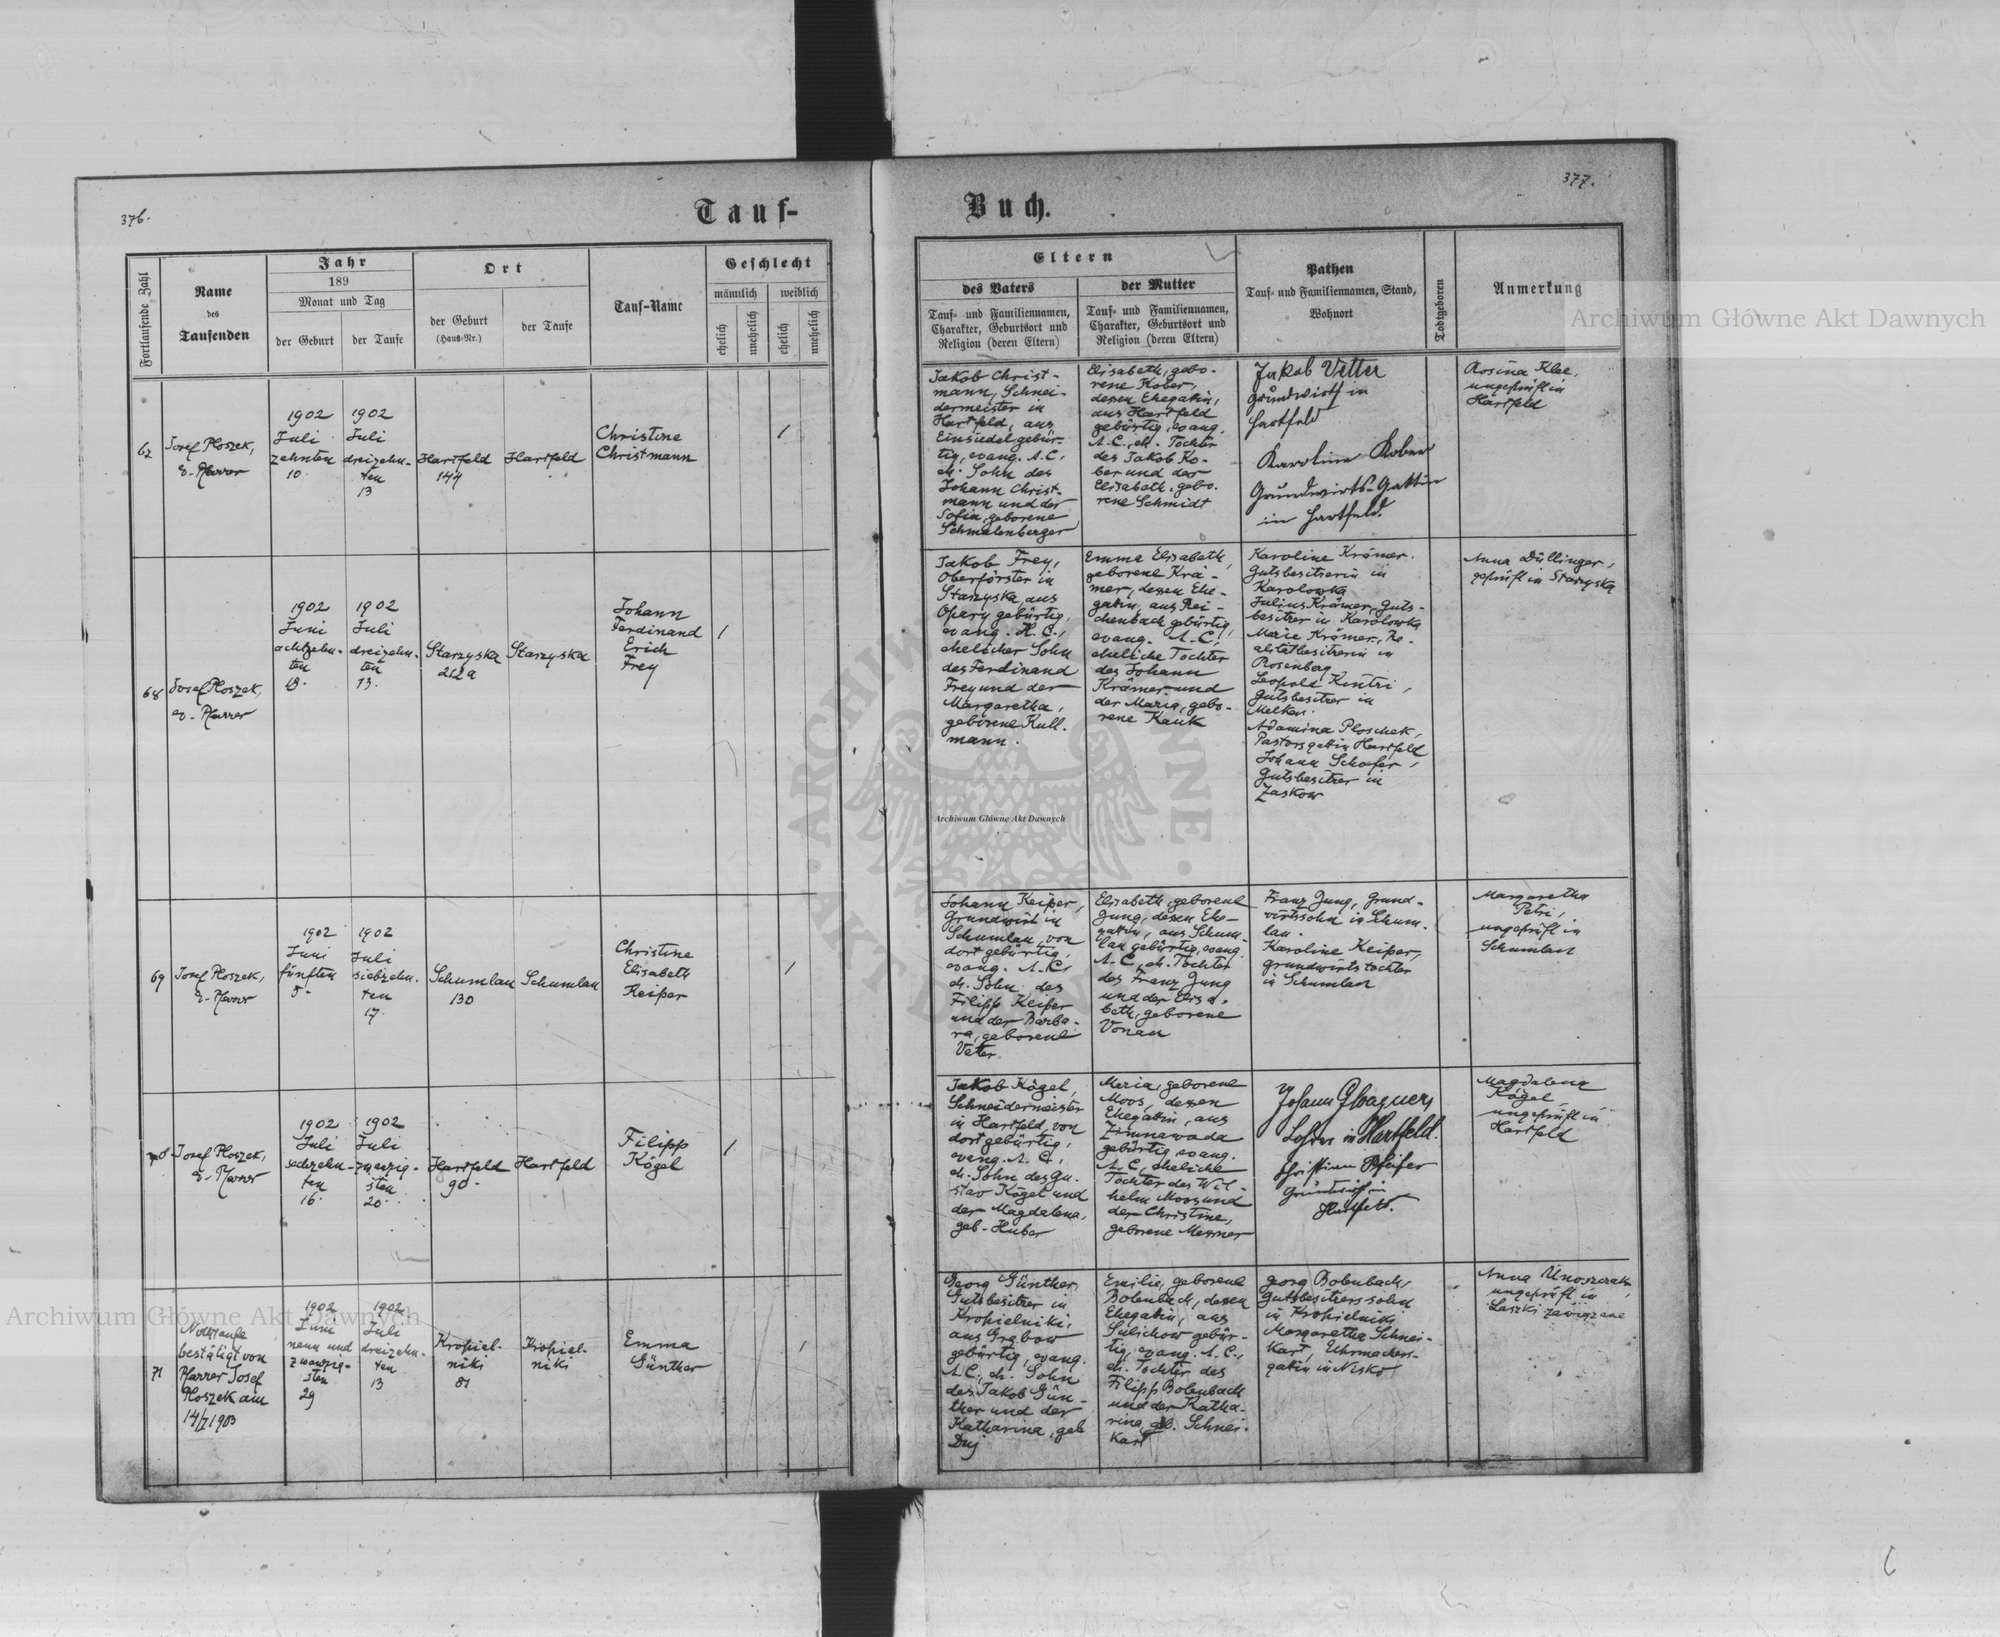 376.
Tauf-
Fortlaufende Zahl
Name
des
Taufenden
Jahr
189
Monat und Tag
der Geburt
der Taufe
Ort
der Geburt
(Haus-Nr.)
der Taufe
Tauf-Name
Geschlecht
männlich
weiblich
ehelich
unehelich
ehelich
unehelich
67
Josef Ploszek,
ev. Pfarrer
1902
Juli
zehnten
10.
1902
Juli
dreizehn-
ten
13
Hartfeld
144
Hartfeld
Christine
Christmann
68
Josef Ploszek,
ev. Pfarrer
1902
Juni
achtzehn-
ten
18.
1902
Juli
dreizehn-
ten
13.
Starzyska
212a
Starzyska
Johann
Ferdinand
Erich
Frey
69
Josef Ploszek,
ev. Pfarrer
1902
Juni
fünften
5.
1902
Juli
siebzehn-
ten
17.
Schumlau
130
Schumlau
Christine
Elisabeth
Keiper
70
Josef Ploszek,
ev. Pfarrer
1902
Juli
sechzehn-
ten
16.
1902
Juli
zwanzig-
sten
20.
Hartfeld
90.
Hartfeld
Filipp
Kögel
71
Nottaufe
bestätigt von
Pfarrer Josef
Ploszek am
14/I 1903
1902
Juni
neun und
zwanzig-
sten
29
1902
Juli
dreizehn-
ten
13
Kropiel-
niki
81
Kropiel-
niki
Emma
Günther
377.
Buch.
Eltern
des Vaters
Tauf- und Familiennamen,
Charakter, Geburtsort und
Religion (deren Eltern)
der Mutter
Tauf- und Familiennamen,
Charakter, Geburtsort und
Religion (deren Eltern)
Pathen
Tauf- und Familiennamen, Stand,
Wohnort
Todtgeboren
Anmerkung
Jakob Christ-
mann, Schnei-
dermeister in
Hartfeld, aus
Einsiedel gebür-
tig, evang. A.C.,
eh. Sohn des
Johann Christ-
mann und der
Sofia, geborene
Schmalenberger
Elisabeth, gebo-
rene Kober,
dessen Ehegattin,
aus Hartfeld
gebürtig, evang.
A.C., eh. Tochter
des Jakob Ko-
ber und der
Elisabeth, gebo-
rene Schmidt
Jakob Vetter
Grundwirth in
Hartfeld
Karoline Kober
Grundwirts-Gattin
in Hartfeld.
Rosina Klee,
ungeprüft in
Hartfeld
Jakob Frey,
Oberförster in
Starzyska, aus
Opary gebürtig,
evang. H.C.,
ehelicher Sohn
des Ferdinand
Frey und der
Margaretha,
geborene Kull-
mann.
Emma Elisabeth,
geborene Krä-
mer, dessen Ehe-
gattin, aus Rei-
chenbach gebürtig,
evang. A.C.,
eheliche Tochter
des Johann
Krämer und
der Maria, gebo-
rene Kauk
Karoline Krämer,
Gutsbesitzerin in
Karolowka
Julius Krämer, Guts-
besitzer in Karolowka
Marie Krämer, Re-
alitätbesitzerin in
Rosenberg
Leopold Kintzi,
Gutsbesitzer in
Melken.
Adamina Ploschek,
Pastorsgattin Hartfeld
Johann Schaefer,
Gutsbesitzer in
Zaskow
Anna Düllinger,
geprüft in Starzyska
Johann Keiper,
Grundwirt in
Schumlau, von
dort gebürtig,
evang. A.C.,
eh. Sohn des
Filipp Keiper
und der Barba-
ra, geborene
Vetter.
Elisabeth, geborene
Jung, dessen Ehe-
gattin, aus Schum-
lau gebürtig, evang.
A.C., eh. Tochter
des Franz Jung
und der Elisa-
beth, geborene
Vonau
Franz Jung, Grund-
wirtssohn in Schum-
lau.
Karoline Keiper,
Grundwirtstochter
in Schumlau
Margaretha
Petri,
ungeprüft in
Schumlau
Jakob Kögel,
Schneidermeister
in Hartfeld, von
dort gebürtig,
evang. A.C.,
eh. Sohn des Gu-
stav Kögel und
der Magdalena,
geb. Huber
Maria, geborene
Moos, dessen
Ehegattin, aus
Zimnawada
gebürtig, evang.
A.C., eheliche
Tochter des Wil-
helm Moos und
der Christine,
geborene Messner
Johann Wagner,
in Hartfeld.
Christian Pfeifer
Grundwirth in
Hartfeld.
Magdalena
Kögel
ungeprüft in
Hartfeld
Georg Günther,
Gutsbesitzer in
Kropielniki,
aus Grabow
gebürtig, evang.
A.C., eh. Sohn
des Jakob Gün-
ther und der
Katharina, geb.
Duj
Emilie, geborene
Bolenbach, dessen
Ehegattin, aus
Sulichow gebür-
tig, evang. A.C.,
eh. Tochter des
Filipp Bolenbach
und der Katha-
rina, geb. Schnei-
kart
Georg Bolenbach,
Gutsbesitzerssohn
in Kropielniki
Margaretha Schnei-
kart, Uhrmachers-
gattin in Nisko
Anna Unoszczak,
ungeprüft in
Laszki zawiązane
Archiwum Główne Akt Dawnych
Archiwum Główne Akt Dawnych
Archiwum Główne Akt Dawnych